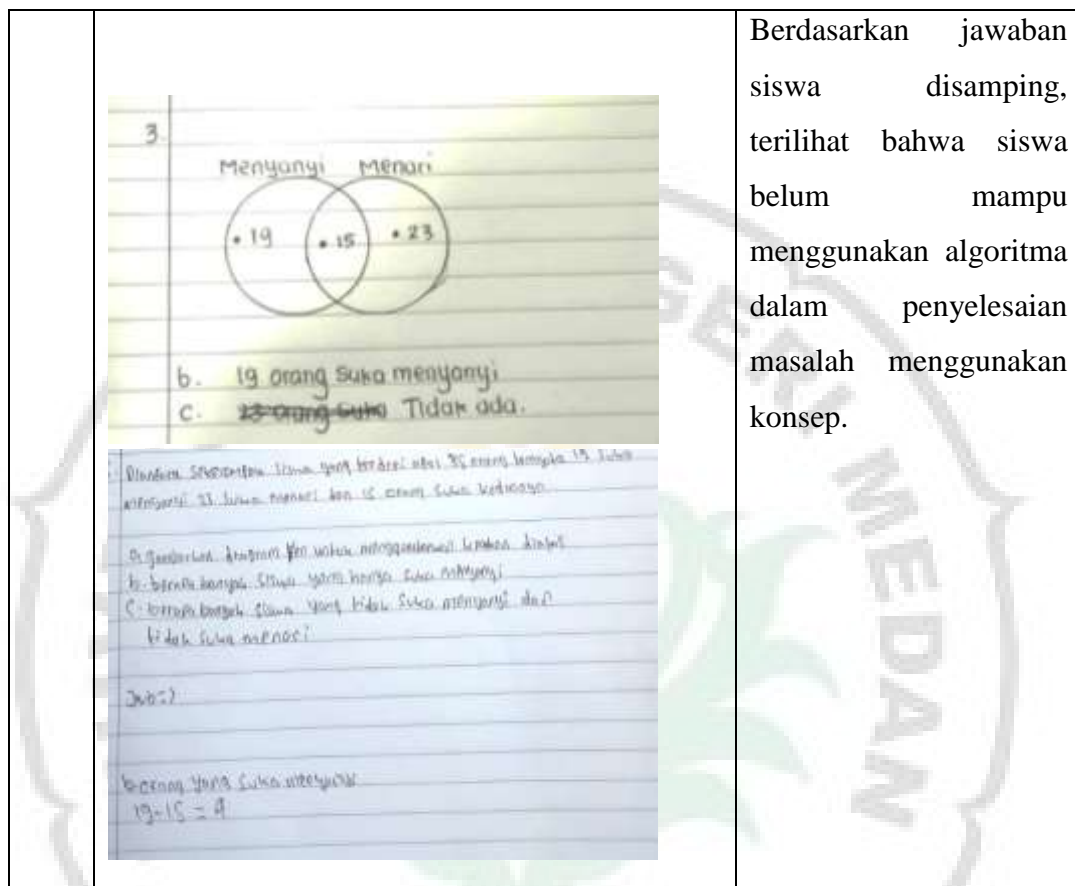 3.
Menyanyi Menari
• 19 • 15 • 23
b. 19 orang suka menyanyi
c. 23 orang suka Tidak ada.
siswa yang terdiri atas 35 orang 19 suka
menyanyi 23 suka menari dan 15 orang suka keduanya
a. gambarkan diagram untuk
b. berapa banyak siswa yang hanya suka menyanyi
c. berapa banyak siswa yang tidak suka menyanyi dan
tidak suka menari
Jwb =>
b. orang yang suka
19-15 = 4
Berdasarkan jawaban
siswa disamping,
terilihat bahwa siswa
belum mampu
menggunakan algoritma
dalam penyelesaian
masalah menggunakan
konsep.
GERI MEDAN